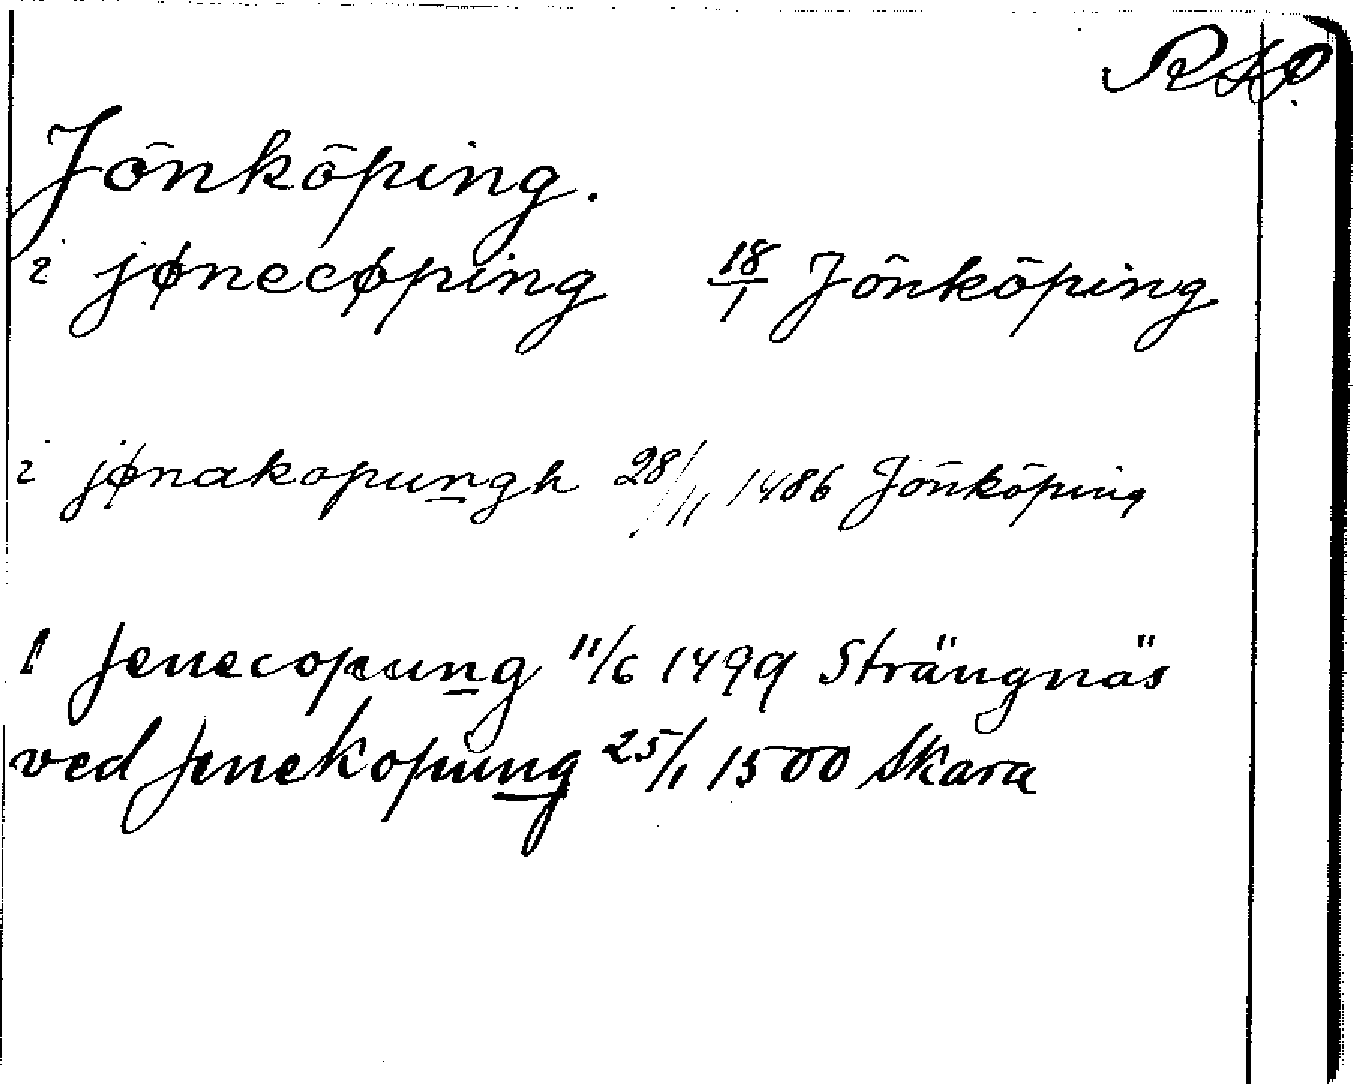 RAp.
Jönköping.
i jønecøping 18/1 Jönköping
i jønakopungh 28/11 1486 Jönköping
I Jenecopung 11/6 1499 Strängnäs
ved Jenekopung 25/1 1500 Skara